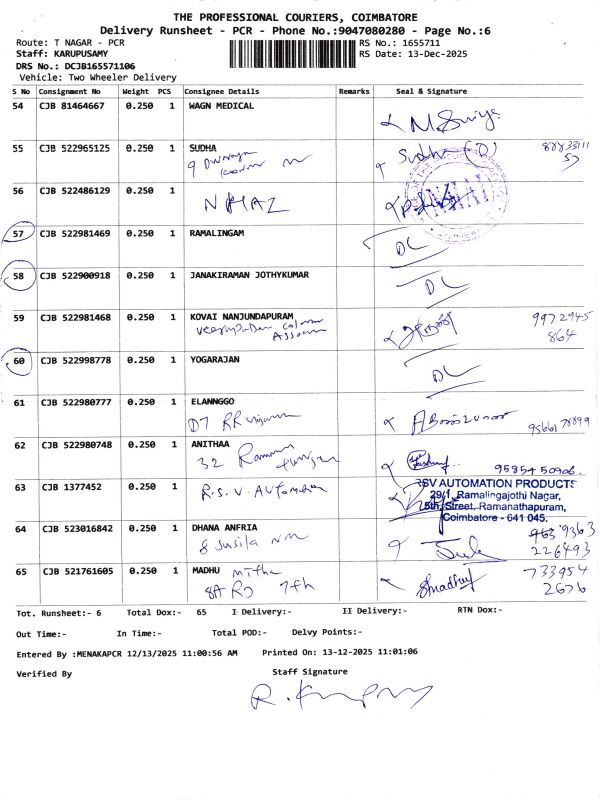 THE PROFESSIONAL COURIERS, COIMBATORE
Delivery Runsheet - PCR - Phone No.:9047080280 - Page No.:6
Route: T NAGAR - PCR
RS No.: 1655711
Staff: KARUPUSAMY
RS Date: 13-Dec-2025
DRS No.: DCJB165571106
Vehicle: Two Wheeler Delivery
S No Consignment No Weight PCS Consignee Details Remarks Seal & Signature
54 CJB 81464667 0.250 1 WAGN MEDICAL
55 CJB 522965125 0.250 1 SUDHA
9
Sudha
56 CJB 522486129 0.250 1
57 CJB 522981469 0.250 1 RAMALINGAM
DL
58 CJB 522900918 0.250 1 JANAKIRAMAN JOTHYKUMAR
DL
59 CJB 522981468 0.250 1 KOVAI NANJUNDAPURAM
9972945
864
60 CJB 522998778 0.250 1 YOGARAJAN
DL
61 CJB 522980777 0.250 1 ELANNGGO
D7 RR
62 CJB 522980748 0.250 1 ANITHAA
32
9585450906
63 CJB 1377452 0.250 1
R.S.V. Automation
RSV AUTOMATION PRODUCTS
29/1, Ramalingajothi Nagar,
5th Street, Ramanathapuram,
Coimbatore - 641 045.
64 CJB 523016842 0.250 1 DHANA ANFRIA
8 Susila
226493
65 CJB 521761605 0.250 1 MADHU
8A RJ 7th
733954
2676
Tot. Runsheet:- 6 Total Dox:- 65 I Delivery:- II Delivery:- RTN Dox:-
Out Time:- In Time:- Total POD:- Delvy Points:-
Entered By :MENAKAPCR 12/13/2025 11:00:56 AM Printed On: 13-12-2025 11:01:06
Verified By
Staff Signature